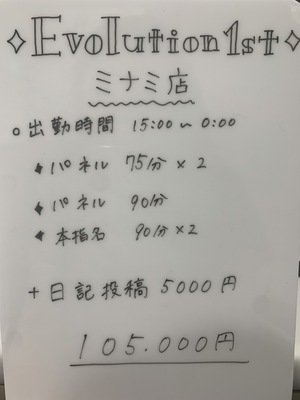 ✧Evolution1st✧
ミナミ店
○出勤時間 15:00~0:00
◆パネル 75分×2
◆パネル 90分
◆本指名 90分×2
+日記投稿 5000円
105.000円